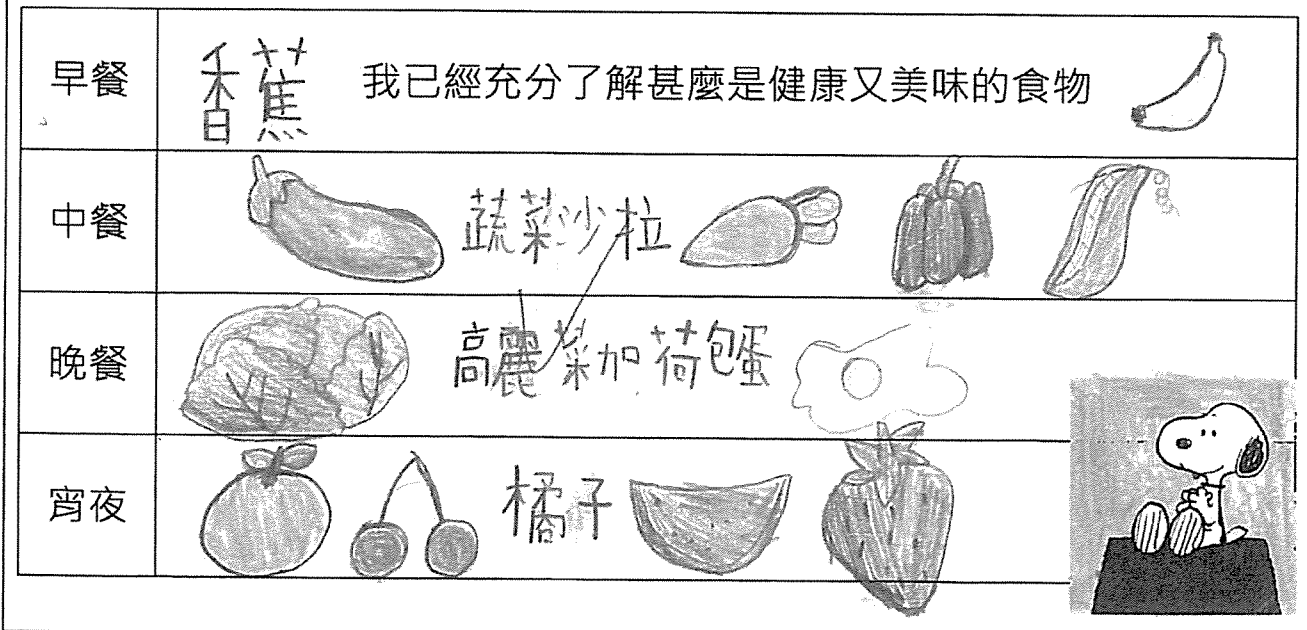 早餐 香蕉 我已經充分了解甚麼是健康又美味的食物
中餐 蔬菜沙拉
晚餐 高麗菜加荷包蛋
宵夜 橘子